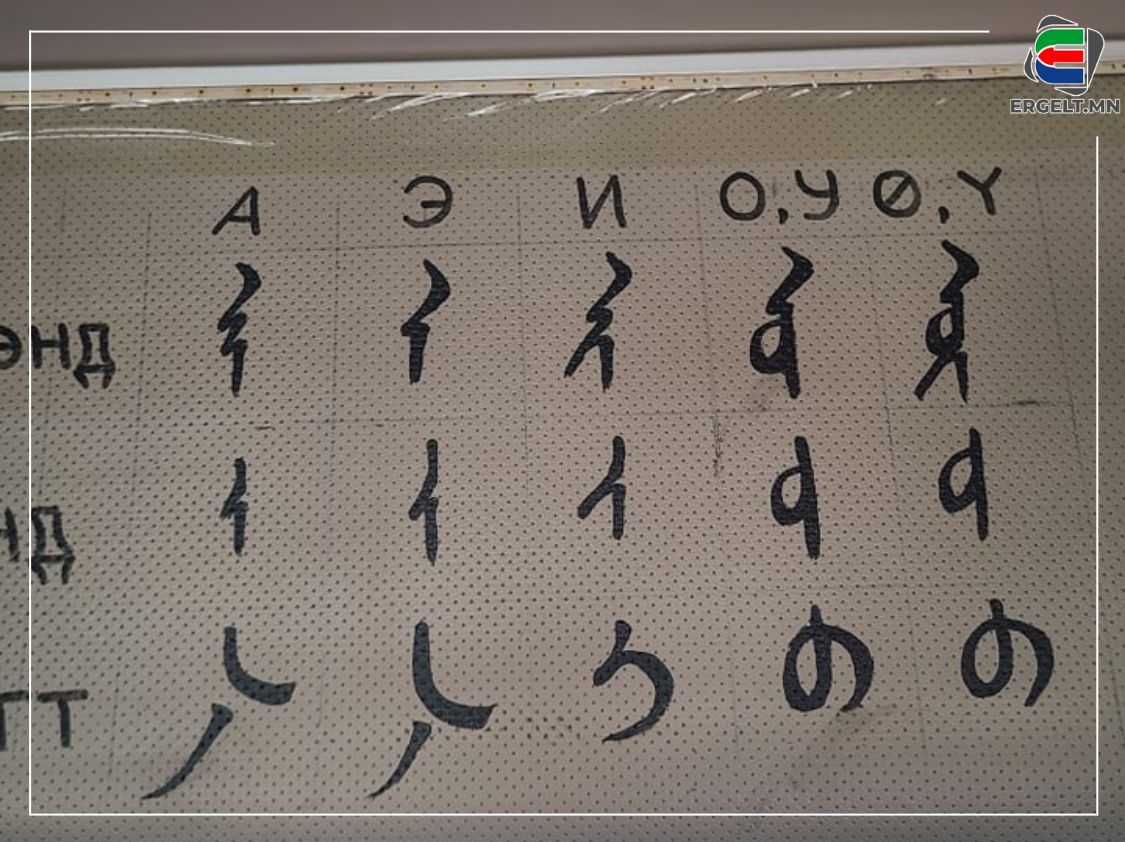 ERGELT.MN
А Э И О,У Ө,Ү
ЭНД ᠠ‍ ᠡ‍ ᠢ‍ ᠣ‍ ᠥ‍
НД ‍ᠠ‍ ‍ᠡ‍ ‍ᠢ‍ ‍ᠣ‍ ‍ᠥ‍
ГТ ‍ᠠ ‍ᠡ ‍ᠢ ‍ᠣ ‍ᠥ